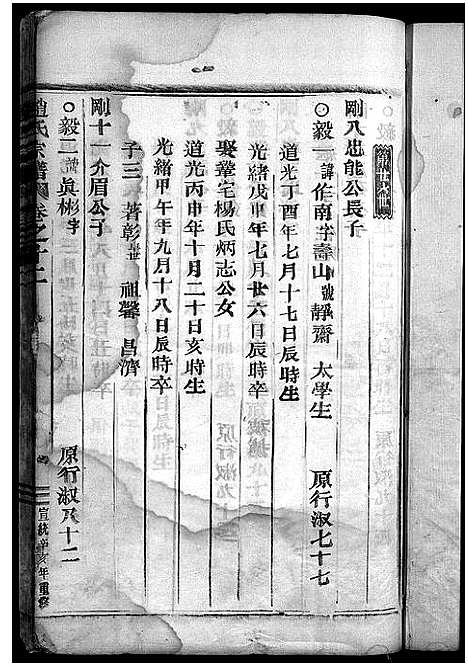 第廿八世
剛八忠能公長子
○毅一諱作南字壽山號靜齋 太學生 原行淑七十七
道光丁酉年七月十七日辰時生
光緒戊申年七月廿六日辰時卒
娶韓宅楊氏炳志公女
道光丙申年十月二十日亥時生
光緒甲午年九月十八日辰時卒
子三 著彰 祖馨 昌濟
剛十一介眉公子
○毅二諱奐彬字 原行淑八十二
趙氏宗譜 卷之十二
宣統辛亥年重修